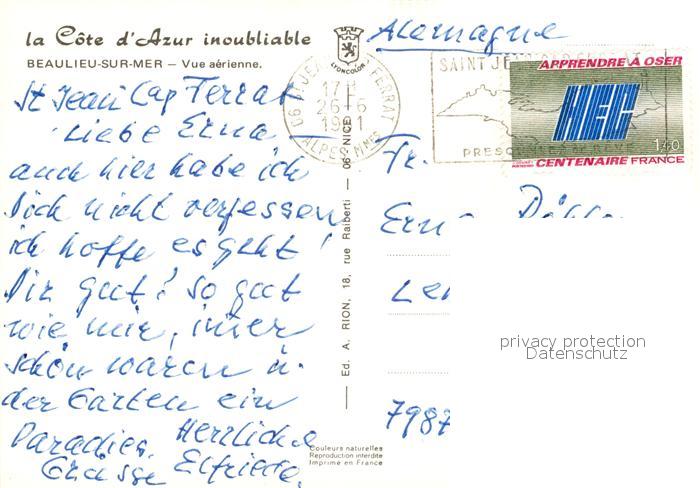 la Côte d'Azur inoubliable
BEAULIEU-SUR-MER — Vue aérienne.
LYONCOLOR
St Jean Cap Ferrat
Liebe Erna
auch hier habe ich
Dich nicht vergessen
ich hoffe es geht
Dir gut! so gut
wie mir,
schön waren u.
der Garten ein
Paradies. Herrliche
Grüsse Elfriede
Couleurs naturelles
Reproduction interdite
Imprimé en France
Ed. A. RION, 18, rue Raiberti — 06 - NICE
Allemagne
17 H
26-6
ALPES MMES
SAINT JEAN CAP FERRAT
APPRENDRE A OSER
HEC
1,40
CENTENAIRE FRANCE
Fr.
7987
privacy protection
Datenschutz